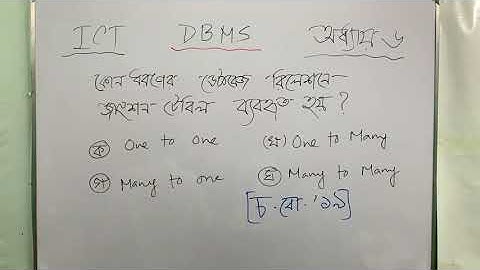 ICT DBMS অধ্যায় ৬
কোন ধরণের ডেটাবেজ রিলেশনে
জাংশন টেবিল ব্যবহৃত হয় ?
(ক) One to One (খ) One to Many
(গ) Many to one (ঘ) Many to Many
[চ. বো. '১৯]